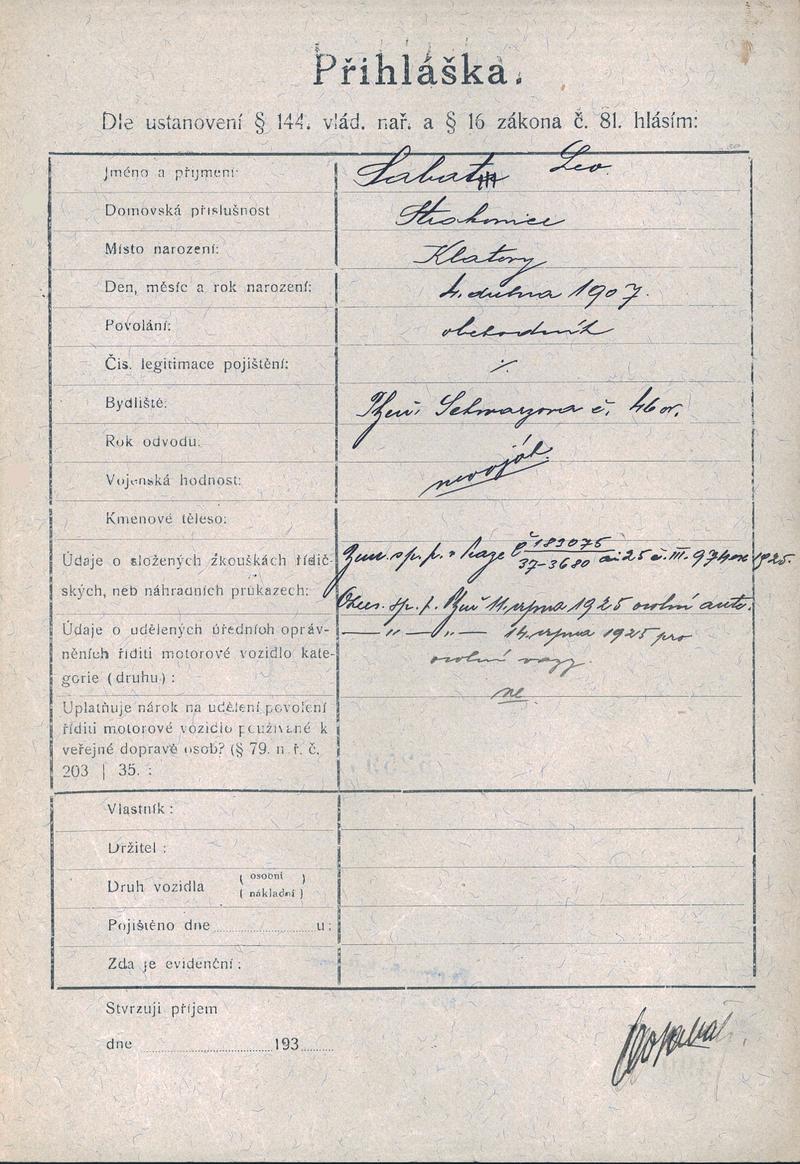 Přihláška.
Dle ustanovení § 144. vlád. nař. a § 16 zákona č. 81. hlásím:
Jméno a příjmení: Sabat Leo
Domovská příslušnost Strakonice
Místo narození: Klatovy
Den, měsíc a rok narození: 4. dubna 1907.
Povolání: obchodník
Čís. legitimace pojištění: ·/·
Bydliště: Plzeň Schwarzova č. 46 or.
Rok odvodu:
Vojenská hodnost: nevoják.
Kmenové těleso:
Údaje o složených zkouškách řidič- Zem. sp. p. v Praze č 183075
ských, neb náhradních průkazech: 37-3680 25 III. 1925.
Okres. sp. p. Plzeň 11. srpna 1925 osobní auto.
Údaje o udělených úředních opráv- — " — " — 14. srpna 1925 pro
něních říditi motorové vozidlo kate- osobní
gorie (druhu) :
ne
Uplatňuje nárok na udělení povolení
říditi motorové vozidlo používané k
veřejné dopravě osob? (§ 79. n. ř. č.
203 | 35. :
Vlastník :
Držitel :
Druh vozidla ( osobní )
( nákladní )
Pojištěno dne ............ u :
Zda je evidenční :
Stvrzuji příjem
dne ............ 193......